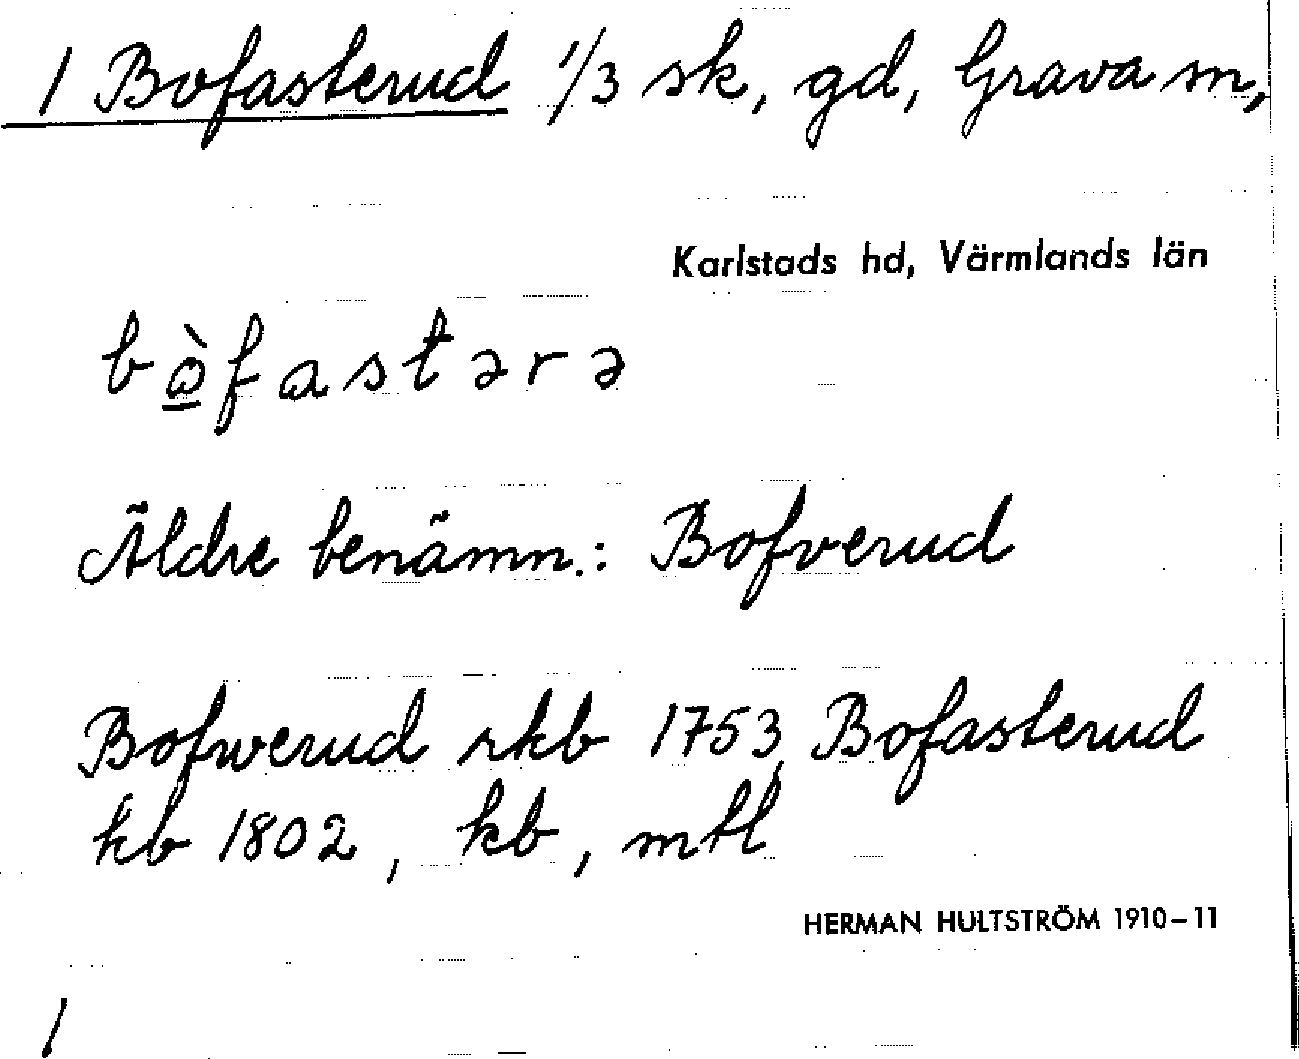 1 Bofasterud 1/3 sk, gd, Grava sn,
Karlstads hd, Värmlands län
bò̲fastərə
Äldre benämn.: Bofverud
Bofwerud rkb 1753, Bofasterud
kb 1802, kb, mtl
HERMAN HULTSTRÖM 1910–11
1